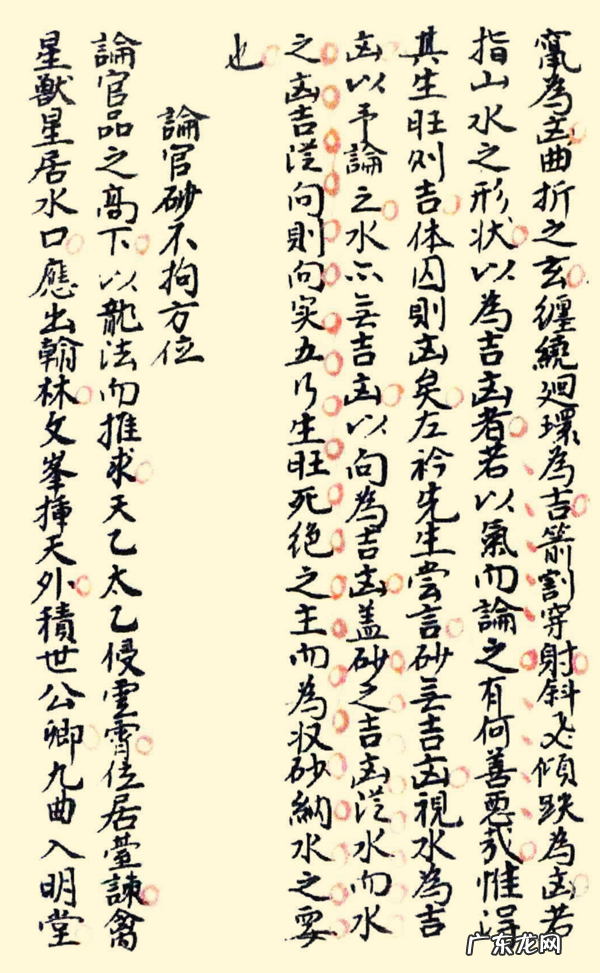 竄為凶曲折之玄纏繞廻環為吉箭割穿射斜飛傾跌為凶若
指山水之形状以為吉凶者若以氣而論之有何善惡㢤惟得
其生旺则吉体囚則凶矣左衿先生嘗言砂無吉凶視水為吉
凶以予論之水亦無吉凶以向為吉凶盖砂之吉凶從水而水
之凶吉從向則向实五行生旺死绝之主而為收砂納水之要
也
論官砂不拘方位
論官品之高下以龍法而推求天乙太乙侵雲霄位居臺諫禽
星獸星居水口應出翰林文峯揷天外積世公卿九曲入明堂
广东龙网